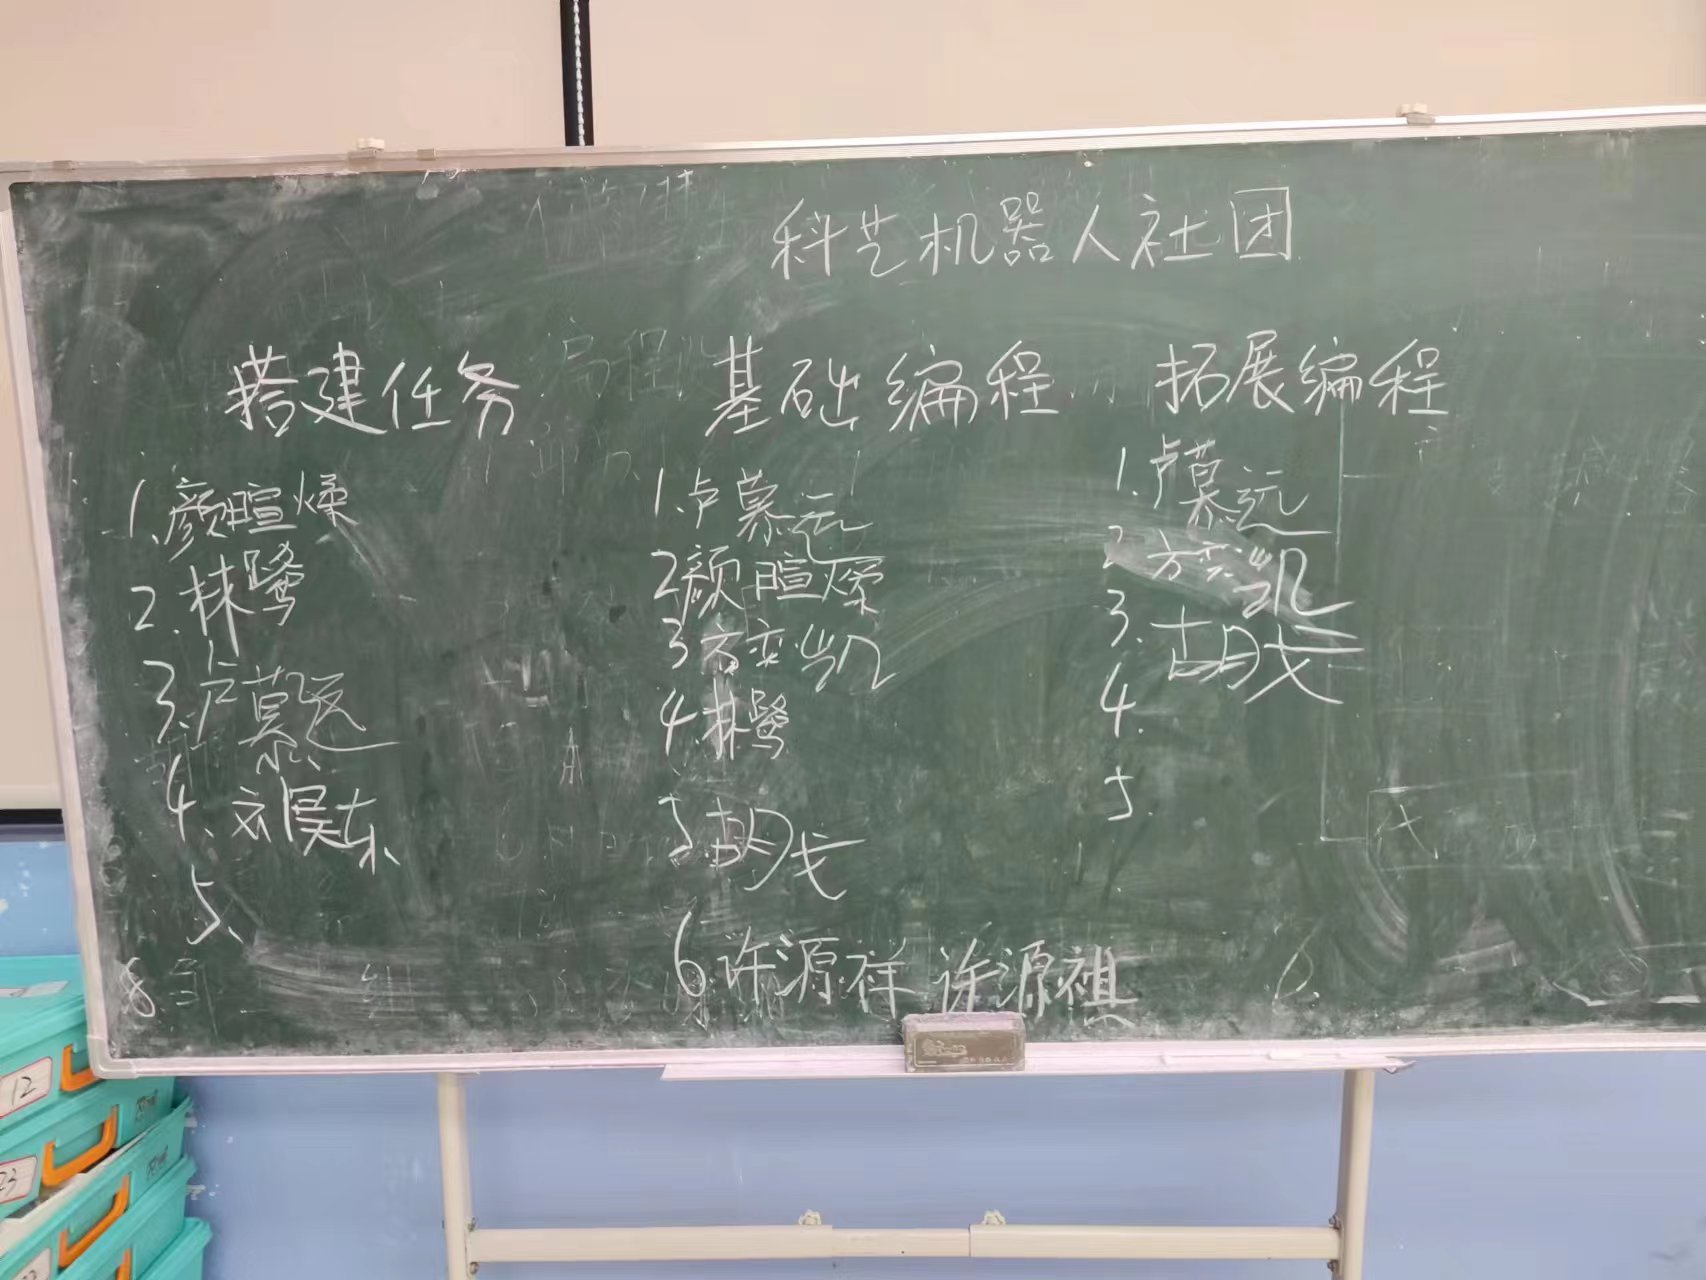 科艺机器人社团
搭建任务
1.颜暄燦
2.林鹭
3.卢慕远
4.刘昊东
5.
基础编程
1.卢慕远
2颜暄燦
3方奕凯
4.林鹭
5.胡戈
6.许源祥 许源祺
拓展编程
1.卢慕远
2方奕凯
3.胡戈
4.
5.
12
23